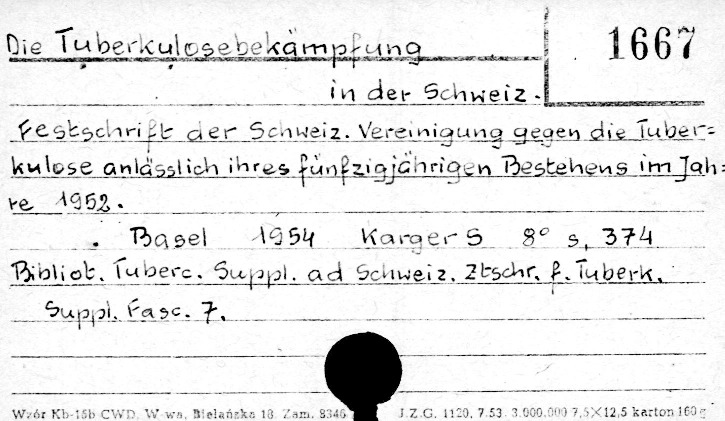 Die Tuberkulosebekämpfung
1667
in der Schweiz.
Festschrift der Schweiz. Vereinigung gegen die Tuber=
kulose anlässlich ihres fünfzigjährigen Bestehens im Jah=
re 1952.
. Basel 1954 Karger S 8° s, 374
Bibliot. Tuberc. Suppl. ad Schweiz. Ztschr. f. Tuberk.
Suppl. Fasc. 7.
Wzór Kb-15b CWD, W-wa, Bielańska 18. Zam. 8346 J.Z.G. 1120. 7.53. 3.000.000 7,5×12,5 karton 160 g